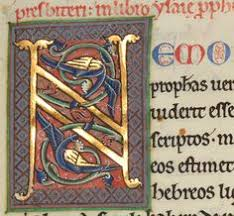 presbiteri: in libro ysaie pph
NEMO
prophas ver
uiderit esse
scriptos: m
eos estimet
hebreos lu